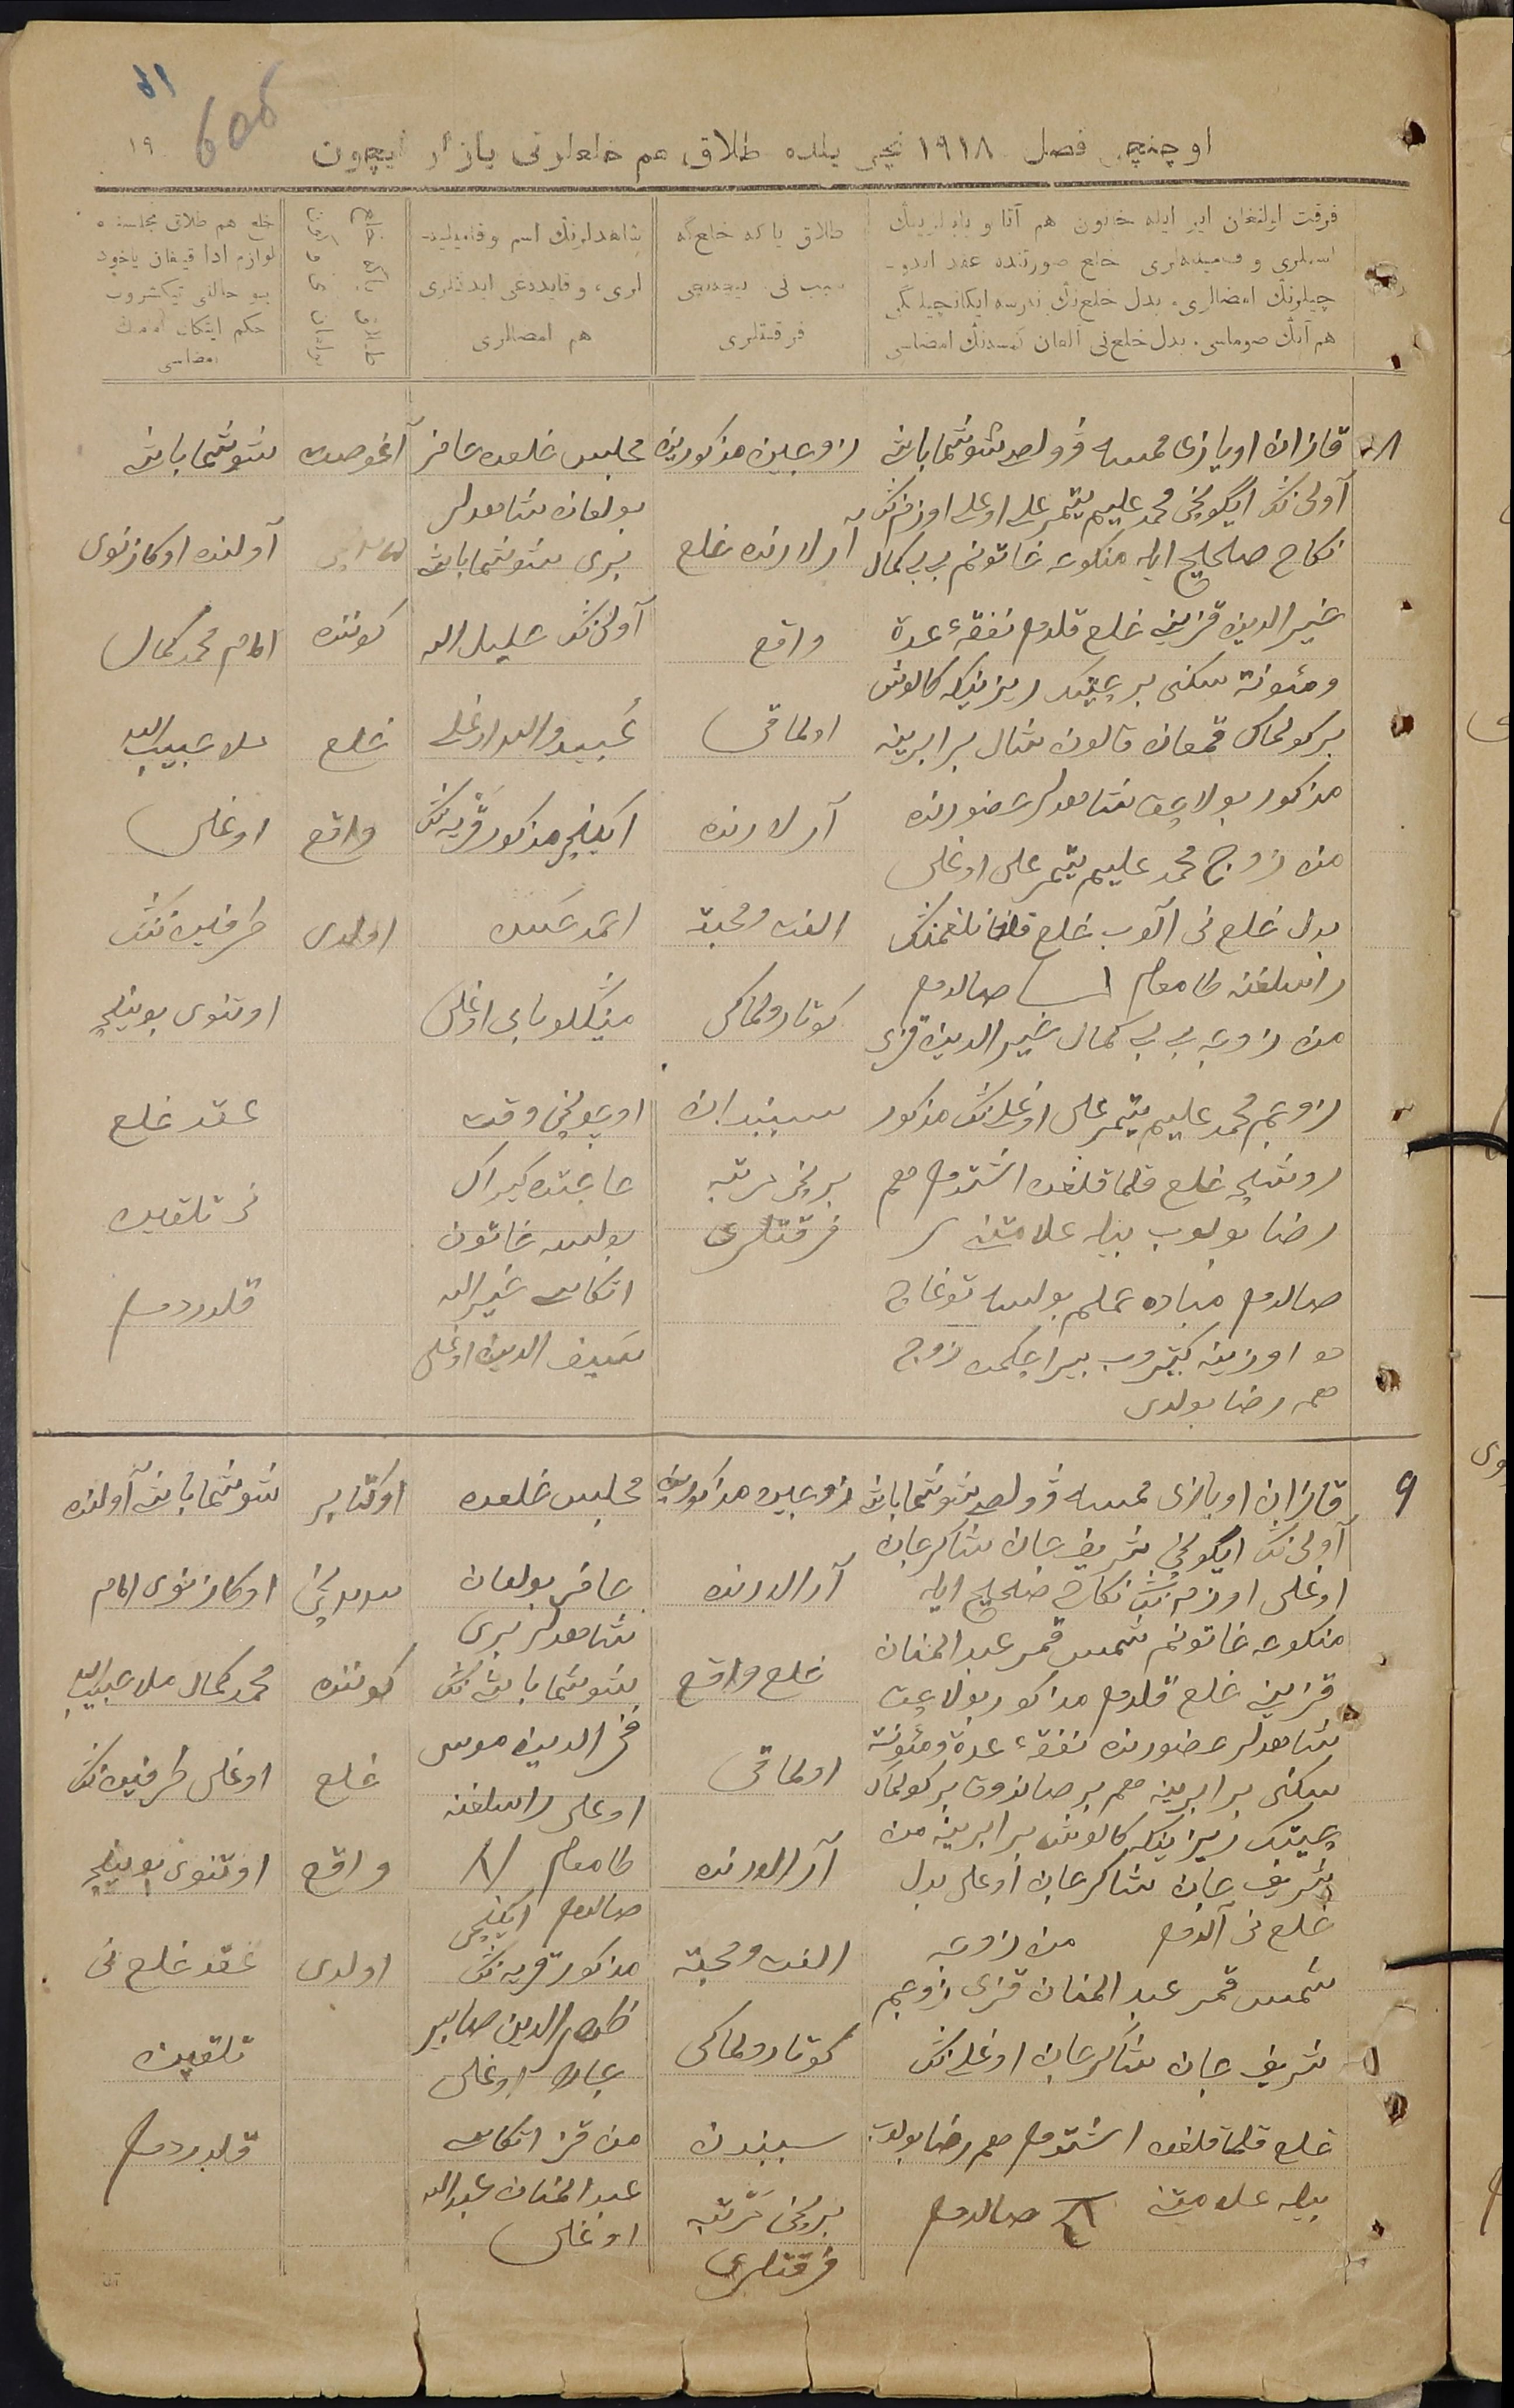 605
۱۹
اوچنچی فصل ۱۹۱۸ نچی یلده طلاق هم خلعلرنی یازار ایچون
فرقت اولنغان ایر ایله خاتون هم آتا و بابالرینڭ
اسملری و فامیلیه‌لری خلع صورتنده عقد ایدو-
چیلرنڭ امضالری، بدل خلع‌نڭ نرسه ایکانچیلگی
هم آنڭ صوماسی، بدل خلع‌نی آلغان کمسه‌نڭ امضاسی
طلاق یا که خلع‌گه
سبب نی، نیچه‌نچی
فرقتلری
شاهدلرنڭ اسم و فامیلیه-
لری، و قایده‌غی ایدکلری
هم امضالری
خلع هم طلاق مجلسنده
لوازم ادا قیلغان یاخود
بو حالنی تیکشروب
حکم ایتکان امامنڭ
امضاسی
۸
قازان اویازی ممسه ڤولصی شوشماباش
آولی‌نڭ ایگونچی محمد علیم یتمر علی اوغلی اوزم‌نڭ
نکاح صحیح ایله منکوحه خاتونم بی بی کمال
خیرالدین قزینی خلع قلدم نفقهٔ عدة
ومئونة سکنی بر چیتک ریزینکه کالوش
بر کولماک قمعان قالون شال برابرینه
مذکور بولاچق شاهدلر حضورنده
من زوج محمد علیم یتمر علی اوغلی
بدل خلع نی آلوب خلع قلغانلغمنڭ
راسلغنه طامغام صالدم
من زوجه بی بی کمال خیرالدین قزی
زوجم محمد علیم یتمر علی اوغلی‌نڭ مذکور
روشچه خلع قلماقلغن اشتدم هم
رضا بولوب بیله علامتنه
صالدم مباده حملم بولسه توغاچ
اوزینه کیتروب بیراچکمن زوج
هم رضا بولدی
زوجین مذکورین
آرالارنده خلع
واقع
اولماقی
آرالارنده
الفت ومحبة
کوتارولماکی
سببندان
برنچی مرتبه
فرقتلری
مجلس خلعده حاضر
بولغان شاهدلر
بری شوشماباش
آولی‌نڭ خلیل الله
عبیدالله اوغلی
ایکنچی مذکور قریه‌نڭ
احمد
مینکلوبای اوغلی
اوچونچی وقت
حاجتده کیراک
بولسه خاتون
اتکاسی خیرالله
سیف الدین اوغلی
آغوصت
کوننده
خلع
واقع
اولدی
شوشماباش
آولنده اوکازنوی
امام محمد کمال
ملا حبیب الله
اوغلی
طرفین‌نڭ
اوتنوی بوینچه
عقد خلع
نی تلقین
قلدردم
۹
قازان اویازی ممسه ڤولصی شوشماباش
آولی‌نڭ ایگونچی شریف جان شاکرجان
اوغلی اوزم‌نڭ نکاح صحیح ایله
منکوحه خاتونم شمس قمر عبدالمنان
قزینی خلع قلدم مذکور بولاچق
شاهدلر حضورنده نفقهٔ عدة ومئونة
سکنی برابرینه هم بر صاندوق بر کولماک
چیتک ریزینکه کالوش برابرینه من
شریف جان شاکرجان اوغلی بدل
خلع نی آلدم من زوجه
شمس قمر عبدالمنان قزی زوجم
شریف جان شاکرجان اوغلی‌نڭ
خلع قلماقلغن اشتدم هم رضا بولوب
بیله علامتنه صالدم
زوجین مذکورین
آرالارنده
خلع واقع
اولماقی
آرالارنده
الفت ومحبة
کوتارولماکی
سببندن
برنچی مرتبه
فرقتلری
مجلس خلعده
حاضر بولغان
شاهدلر بری
شوشماباش‌نڭ
فخرالدین موسی
اوغلی راسلغنه
طامغام
صالدم ایکنچی
مذکور قریه‌نڭ
ظهرالدین صابیر
جان اوغلی
من قز اتکاسی
عبدالمنان عبدالله
اوغلی
اوکتابر
کوننده
خلع
واقع
اولدی
شوشماباش آولنده
اوکازنوی امام
محمد کمال ملا حبیب الله
اوغلی طرفین‌نڭ
اوتنوی بوینچه
عقد خلع نی
تلقین
قلدردم